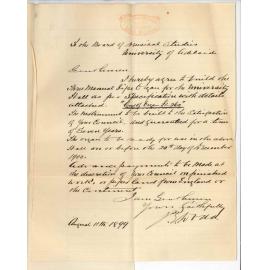 To the Board of Musical Studies
University of Adelaide
Gentlemen
I hereby agree to build the
Three Manual Pipe Organ for the University
Hall as per Specification with details
attached
The Instrument to be built to the Satisfaction
of your Council and guaranteed for a term
of Seven Years.
The organ to be ready for use in the above
Hall on or before the 20th day of December
1900.
payments to be made at
the discretion of your Council on finished
work, or paper landed from England or
the Continent.
I am Gentlemen
Yours faithfully
J E Dodd
August 11th 1899